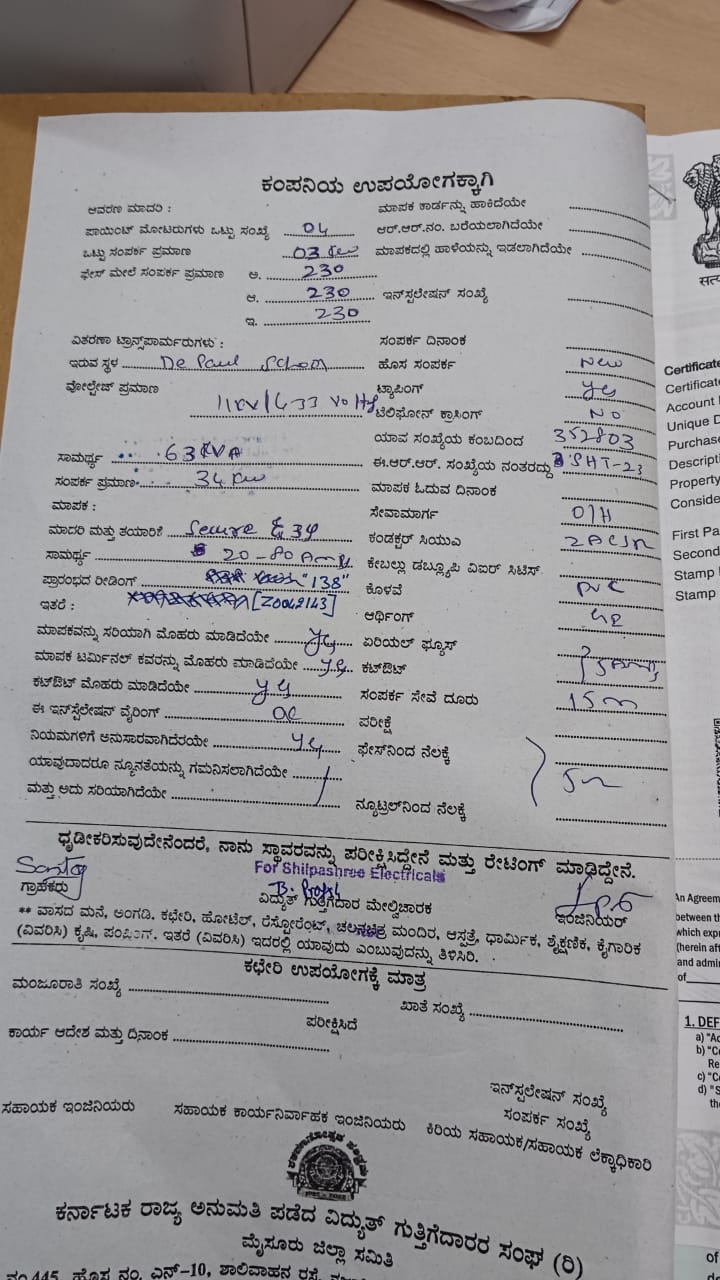 ಕಂಪನಿಯ ಉಪಯೋಗಕ್ಕಾಗಿ
ಆವರಣ ಮಾದರಿ : ಮಾಪಕ ಕಾರ್ಡನ್ನು ಹಾಕಿದೆಯೇ
ಪಾಯಿಂಟ್ ಮೋಟರುಗಳು ಒಟ್ಟು ಸಂಖ್ಯೆ 04 ಆರ್.ಆರ್.ನಂ. ಬರೆಯಲಾಗಿದೆಯೇ
ಒಟ್ಟು ಸಂಪರ್ಕ ಪ್ರಮಾಣ 03 ಮಾಪಕದಲ್ಲಿ ಹಾಳೆಯನ್ನು ಇಡಲಾಗಿದೆಯೇ
ಫೇಸ್ ಮೇಲೆ ಸಂಪರ್ಕ ಪ್ರಮಾಣ ಅ. 230
ಆ. 230 ಇನ್‌ಸ್ಟಲೇಷನ್ ಸಂಖ್ಯೆ
ಇ. 230
ವಿತರಣಾ ಟ್ರಾನ್ಸ್‌ಪಾರ್ಮರುಗಳು : ಸಂಪರ್ಕ ದಿನಾಂಕ
ಇರುವ ಸ್ಥಳ De Paul School ಹೊಸ ಸಂಪರ್ಕ New
ವೋಲ್ಟೇಜ್ ಪ್ರಮಾಣ 11KV/433 Volts ಟ್ಯಾಪಿಂಗ್ yes
ಟೆಲಿಫೋನ್ ಕ್ರಾಸಿಂಗ್ NO
ಯಾವ ಸಂಖ್ಯೆಯ ಕಂಬದಿಂದ 352803
ಸಾಮರ್ಥ್ಯ 63KVA ಈ.ಆರ್.ಆರ್. ಸಂಖ್ಯೆಯ ನಂತರದ್ದು SHT-23
ಸಂಪರ್ಕ ಪ್ರಮಾಣ 34 KW ಮಾಪಕ ಓದುವ ದಿನಾಂಕ
ಮಾಪಕ : ಸೇವಾಮಾರ್ಗ O/H
ಮಾದರಿ ಮತ್ತು ತಯಾರಿಕೆ Secure 3φ ಕಂಡಕ್ಟರ್ ಸಿಯುವಿ
ಸಾಮರ್ಥ್ಯ 20-80 Amps ಕೇಬಲ್ಲು ಡಬ್ಲ್ಯೂಪಿ ವಿಐರ್ ಸಿಟಿಸ್
ಪ್ರಾರಂಭದ ರೀಡಿಂಗ್ "138" ಕೊಳವೆ PVC
ಇತರೆ : [Z0042143] ಆರ್ಥಿಂಗ್
ಮಾಪಕವನ್ನು ಸರಿಯಾಗಿ ಮೊಹರು ಮಾಡಿದೆಯೇ yes ಏರಿಯಲ್ ಫ್ಯೂಸ್
ಮಾಪಕ ಟರ್ಮಿನಲ್ ಕವರನ್ನು ಮೊಹರು ಮಾಡಿದೆಯೇ yes ಕಟ್‌ಔಟ್
ಕಟ್‌ಔಟ್ ಮೊಹರು ಮಾಡಿದೆಯೇ yes ಸಂಪರ್ಕ ಸೇವೆ ದೂರು 15m
ಈ ಇನ್‌ಸ್ಟಲೇಷನ್ ವೈರಿಂಗ್ ಪರೀಕ್ಷೆ
ನಿಯಮಗಳಿಗೆ ಅನುಸಾರವಾಗಿದೆರಯೇ yes ಫೇಸ್‌ನಿಂದ ನೆಲಕ್ಕೆ
ಯಾವುದಾದರೂ ನ್ಯೂನತೆಯನ್ನು ಗಮನಿಸಲಾಗಿದೆಯೇ
ಮತ್ತು ಅದು ಸರಿಯಾಗಿದೆಯೇ ನ್ಯೂಟ್ರಲ್‌ನಿಂದ ನೆಲಕ್ಕೆ
ಧೃಢೀಕರಿಸುವುದೇನೆಂದರೆ, ನಾನು ಸ್ಥಾವರವನ್ನು ಪರೀಕ್ಷಿಸಿದ್ದೇನೆ ಮತ್ತು ರೇಟಿಂಗ್ ಮಾಡಿದ್ದೇನೆ.
For Shilpashree Electricals
ಗ್ರಾಹಕರು ವಿದ್ಯುತ್ ಗುತ್ತಿಗೆದಾರ ಮೇಲ್ವಿಚಾರಕ ಇಂಜಿನಿಯರ್
** ವಾಸದ ಮನೆ, ಅಂಗಡಿ, ಕಛೇರಿ, ಹೋಟೆಲ್, ರೆಸ್ಟೋರೆಂಟ್, ಚಲನಚಿತ್ರ ಮಂದಿರ, ಆಸ್ಪತ್ರೆ, ಧಾರ್ಮಿಕ, ಶೈಕ್ಷಣಿಕ, ಕೈಗಾರಿಕ
(ವಿವರಿಸಿ) ಕೃಷಿ, ಪಂಪಿಂಗ್. ಇತರೆ (ವಿವರಿಸಿ) ಇದರಲ್ಲಿ ಯಾವುದು ಎಂಬುವುದನ್ನು ತಿಳಿಸಿರಿ.
ಕಛೇರಿ ಉಪಯೋಗಕ್ಕೆ ಮಾತ್ರ
ಮಂಜೂರಾತಿ ಸಂಖ್ಯೆ ಖಾತೆ ಸಂಖ್ಯೆ
ಪರೀಕ್ಷಿಸಿದೆ
ಕಾರ್ಯ ಆದೇಶ ಮತ್ತು ದಿನಾಂಕ
ಇನ್‌ಸ್ಟಲೇಷನ್ ಸಂಖ್ಯೆ
ಸಂಪರ್ಕ ಸಂಖ್ಯೆ
ಸಹಾಯಕ ಇಂಜಿನಿಯರು ಸಹಾಯಕ ಕಾರ್ಯನಿರ್ವಾಹಕ ಇಂಜಿನಿಯರು ಕಿರಿಯ ಸಹಾಯಕ/ಸಹಾಯಕ ಲೆಕ್ಕಾಧಿಕಾರಿ
ಕರ್ನಾಟಕ ರಾಜ್ಯ ಅನುಮತಿ ಪಡೆದ ವಿದ್ಯುತ್ ಗುತ್ತಿಗೆದಾರರ ಸಂಘ (ರಿ)
ಮೈಸೂರು ಜಿಲ್ಲಾ ಸಮಿತಿ
ನಂ.445, ಹೊಸ ನಂ. ಎನ್-10, ಶಾಲಿವಾಹನ ರಸ್ತೆ,
ಸತ್ಯ
Certificate
Certificate
Account
Unique D
Purchase
Descripti
Property
Conside
First Pa
Second
Stamp
Stamp
An Agreem
between th
which expr
(herein aft
and admir
of
1. DEF
a) "Ac
b) "Co
Re
c) "C
d) "S
the
of